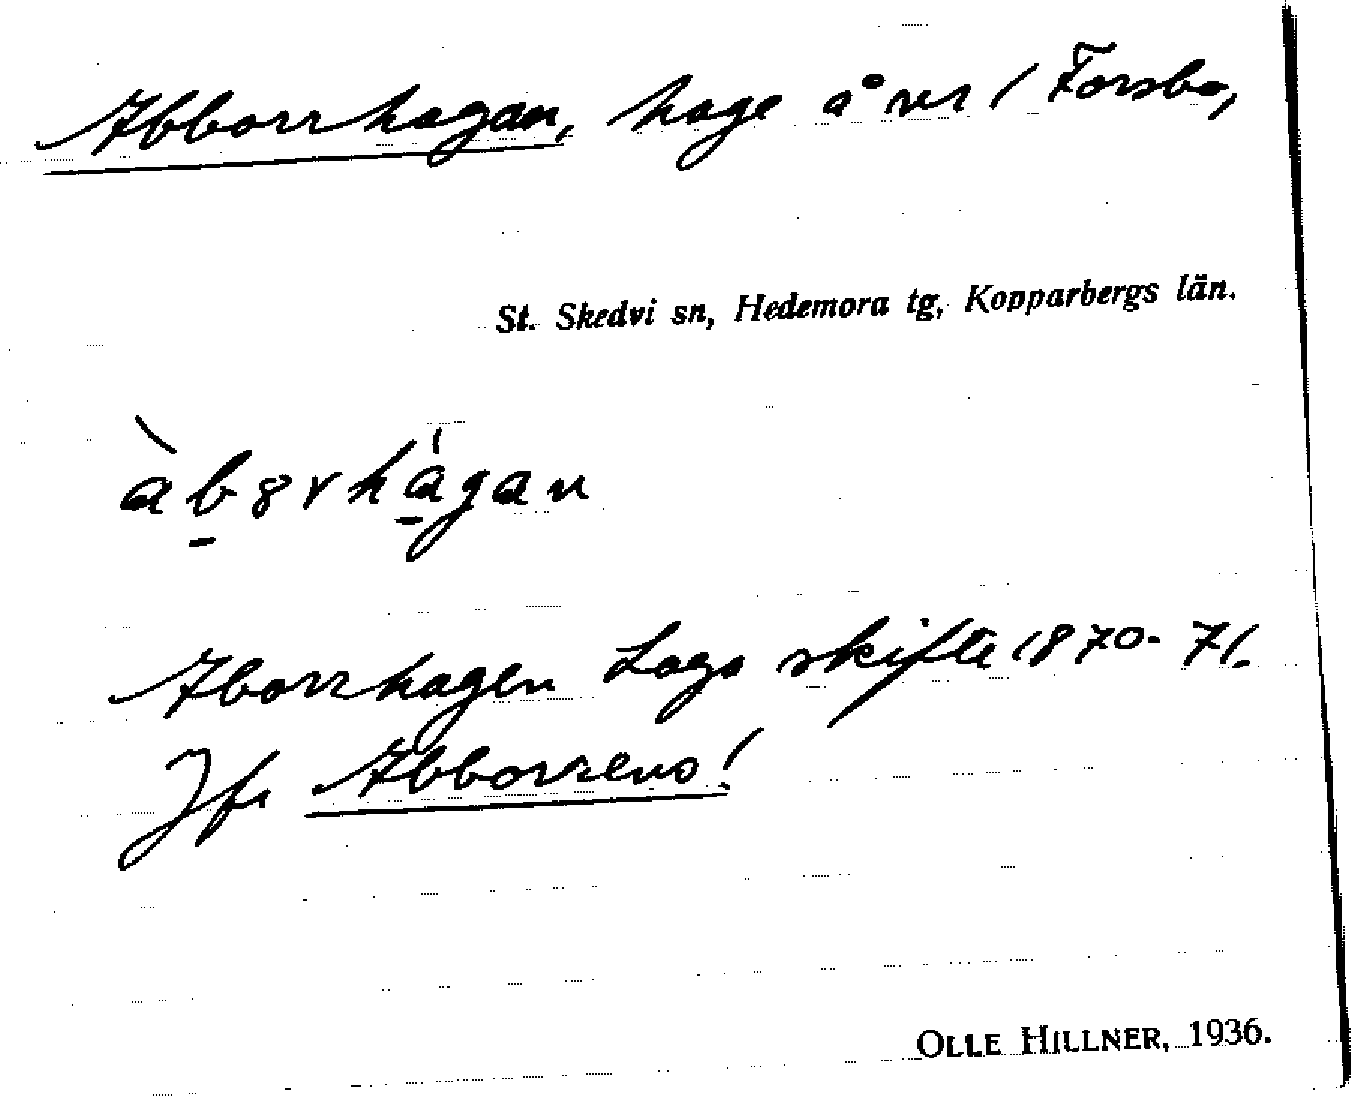 Abborrhagan, hage å vr / Forsbo,
St. Skedvi sn, Hedemora tg, Kopparbergs län.
àb8rhágan
Aborrhagen Laga skifte 1870-71.
Jfr Abborrens!
OLLE HILLNER, 1936.